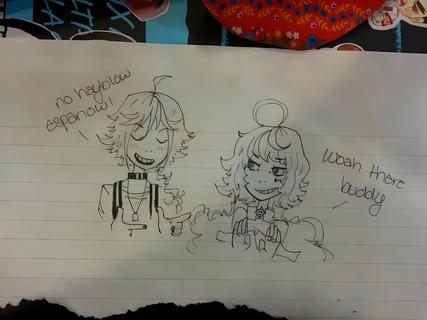 no hayblow
espanow!
Woah there
buddy